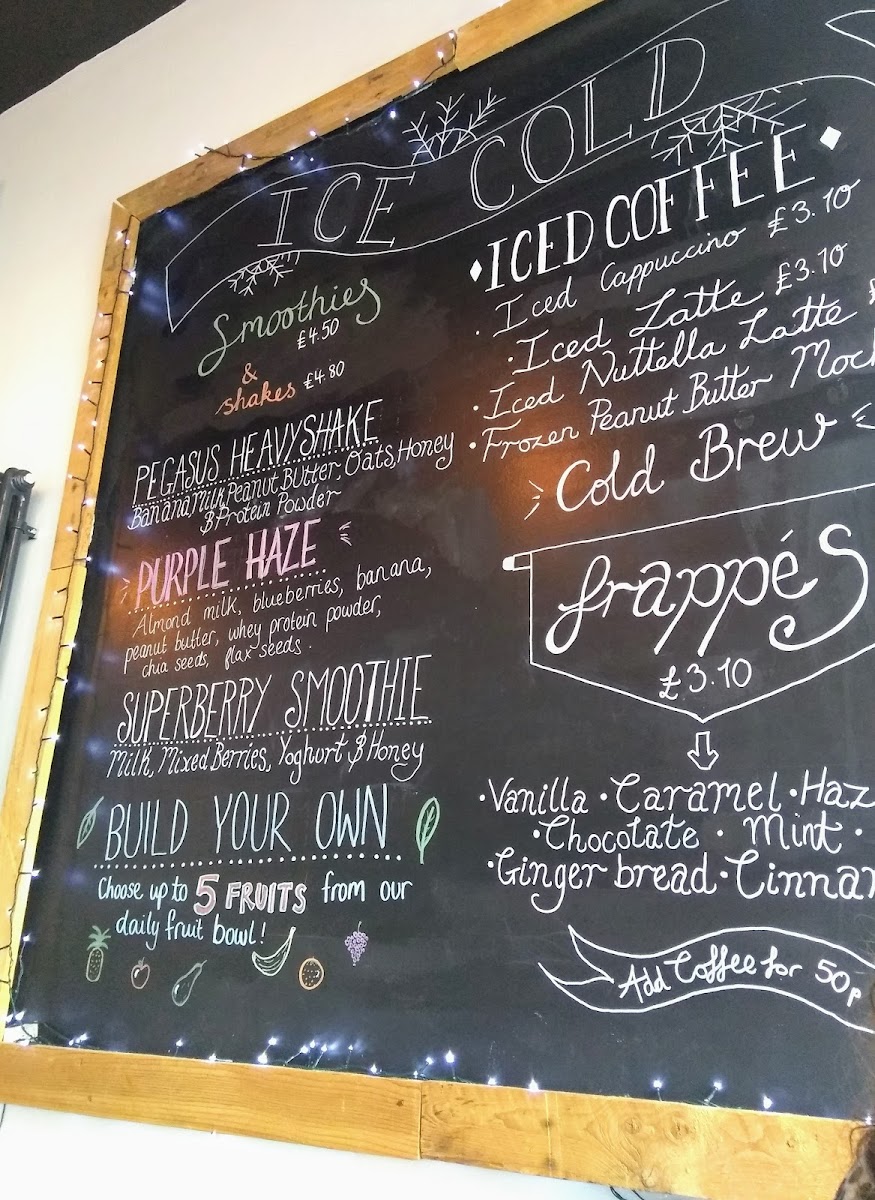 ICE COLD
Smoothies
£4.50
&
shakes £4.80
PEGASUS HEAVYSHAKE
Banana, Milk, Peanut Butter, Oats, Honey
& Protein Powder
PURPLE HAZE
Almond milk, blueberries, banana,
peanut butter, whey protein powder,
chia seeds, flax-seeds.
SUPERBERRY SMOOTHIE
Milk, Mixed Berries, Yoghurt & Honey
BUILD YOUR OWN
Choose up to 5 FRUITS from our
daily fruit bowl!
ICED COFFEE
· Iced Cappuccino £3.10
· Iced Latte £3.10
· Iced Nuttella Latte
· Frozen Peanut Butter
Cold Brew
frappés
£3.10
· Vanilla · Caramel ·
· Chocolate · Mint ·
· Gingerbread ·
Add Coffee for 50p